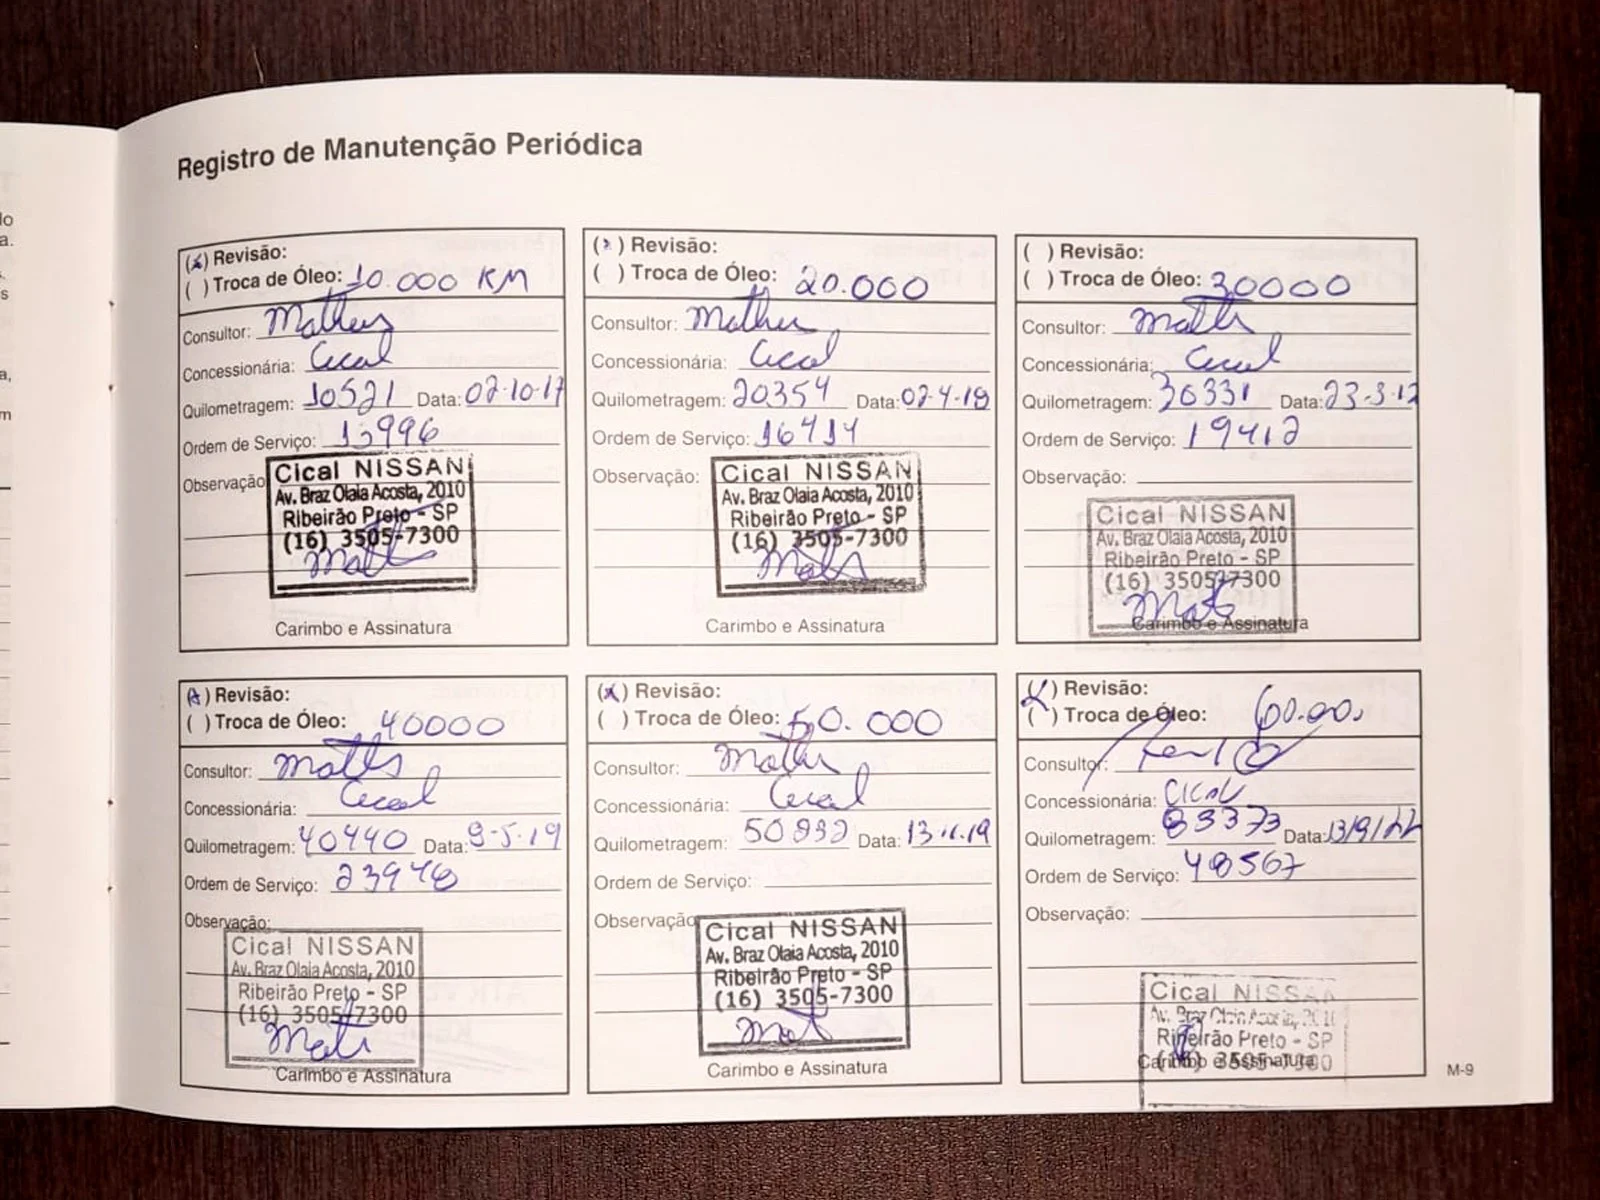 lo
a.
s
a,
m
Registro de Manutenção Periódica
(x) Revisão:
( ) Troca de Óleo: 10.000 KM
Consultor: Matheus
Concessionária: Cical
Quilometragem: 10521 Data: 02-10-17
Ordem de Serviço: 13996
Observação
Cical NISSAN
Av. Braz Olaia Acosta, 2010
Ribeirão Preto - SP
(16) 3505-7300
Carimbo e Assinatura
(x) Revisão:
( ) Troca de Óleo: 20.000
Consultor: Matheu
Concessionária: Cical
Quilometragem: 20354 Data: 02-4-18
Ordem de Serviço: 16414
Observação:
Cical NISSAN
Av. Braz Olaia Acosta, 2010
Ribeirão Preto - SP
(16) 3505-7300
Carimbo e Assinatura
( ) Revisão:
( ) Troca de Óleo: 30000
Consultor:
Concessionária: Cical
Quilometragem: 30331 Data:
Ordem de Serviço: 19412
Observação:
Cical NISSAN
Av. Braz Olaia Acosta, 2010
Ribeirão Preto - SP
(16) 3505-7300
Carimbo e Assinatura
(x) Revisão:
( ) Troca de Óleo: 40000
Consultor:
Concessionária: Cical
Quilometragem: 40440 Data: 9-5-19
Ordem de Serviço: 23948
Observação:
Cical NISSAN
Av. Braz Olaia Acosta, 2010
Ribeirão Preto - SP
(16) 3505-7300
Carimbo e Assinatura
(x) Revisão:
( ) Troca de Óleo: 50.000
Consultor:
Concessionária: Cical
Quilometragem: Data: 13-11-19
Ordem de Serviço:
Observação
Cical NISSAN
Av. Braz Olaia Acosta, 2010
Ribeirão Preto - SP
(16) 3505-7300
Carimbo e Assinatura
(x) Revisão:
( ) Troca de Óleo: 60.000
Consultor:
Concessionária: Cical
Quilometragem: 83373 Data: 13/9/22
Ordem de Serviço: 48567
Observação:
Cical NISSAN
Av. Braz Olaia Acosta, 2010
Ribeirão Preto - SP
(16) 3505-7300
Carimbo e Assinatura
M-9